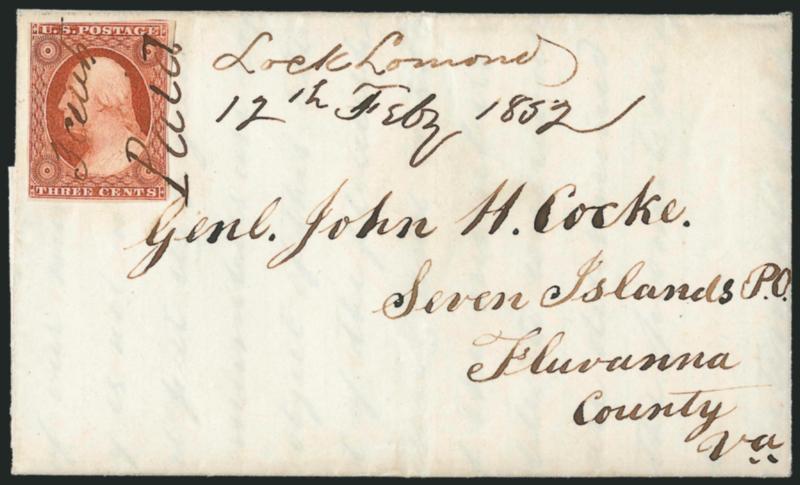 U.S. POSTAGE
THREE CENTS
Paid
Lock Lomond
12th Feby 1852
Genl. John H. Cocke.
Seven Islands P.O.
Fluvanna
County
Va